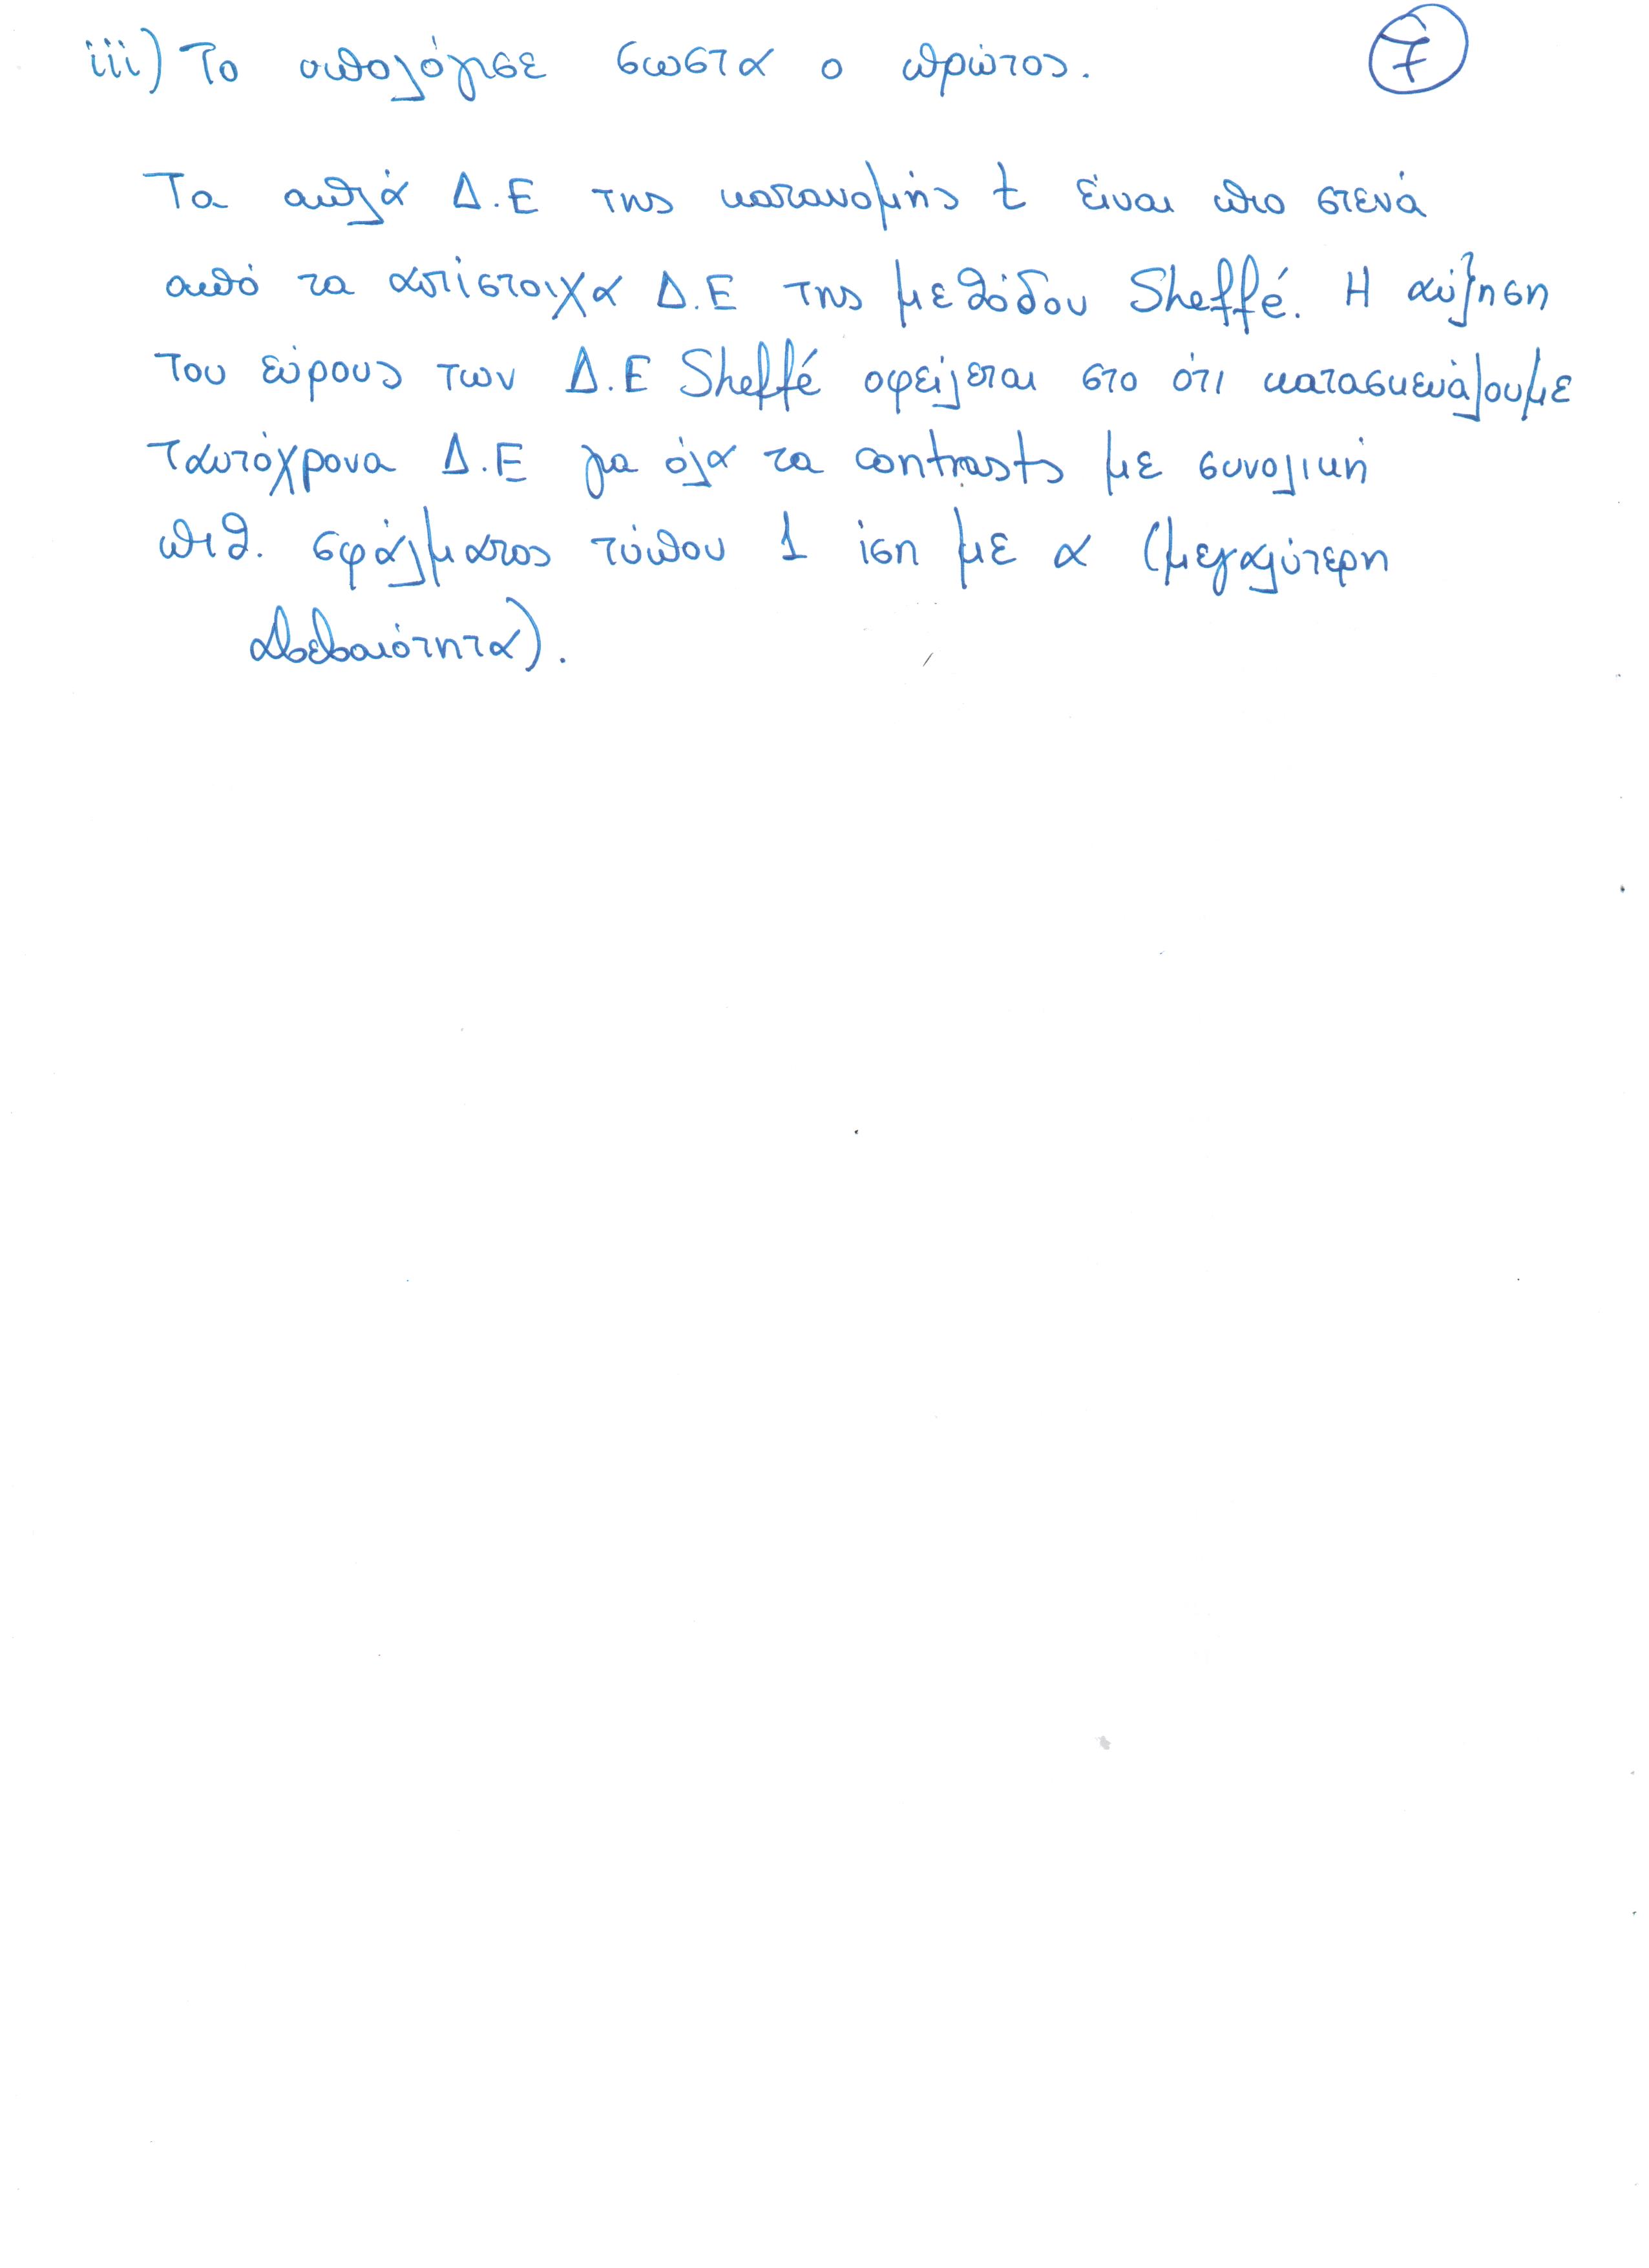 iii) Το υπολόγισε σωστά ο πρώτος.
7
Τα απλά Δ.Ε της κατανομής t είναι πιο στενά
από τα αντίστοιχα Δ.Ε της μεθόδου Sheffé. Η αύξηση
του εύρους των Δ.Ε Sheffé οφείλεται στο ότι κατασκευάζουμε
ταυτόχρονα Δ.Ε για όλα τα contrasts με συνολική
πιθ. σφάλματος τύπου 1 ίση με α (μεγαλύτερη
αβεβαιότητα).